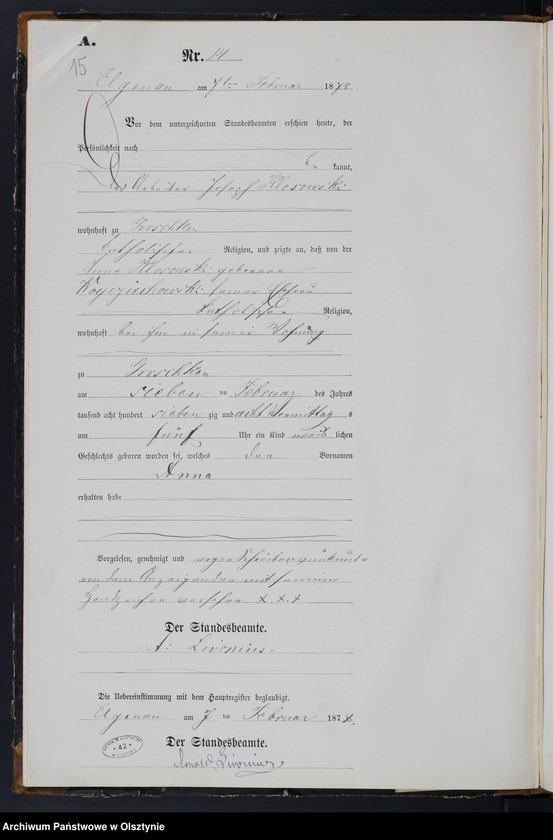 A.
15
Nr. 14.
Elgenau am 7ten Februar 1878.
Vor dem unterzeichneten Standesbeamten erschien heute, der
Persönlichkeit nach
be kannt,
der Arbeiter Joseph Klosowski
wohnhaft zu Groschken
katholischer Religion, und zeigte an, daß von der
Anna Klosowski geborenen
seiner Ehefrau
katholischer Religion,
wohnhaft bei ihm in seiner Wohnung
zu Groschken
am sieben ten Februar des Jahres
tausend acht hundert sieben zig und acht Vormittag s
um fünf Uhr ein Kind weib lichen
Geschlechts geboren worden sei, welches den Vornamen
Anna
erhalten habe
Vorgelesen, genehmigt und wegen Schreibensunkunde
von dem Anzeigenden mit seinem
Handzeichen versehen. + + +
Der Standesbeamte.
A. Livonius.
Die Uebereinstimmung mit dem Hauptregister beglaubigt.
Elgenau am 7 ten Februar 1878.
Der Standesbeamte.
42
Arnold Livonius
Archiwum Państwowe w Olsztynie